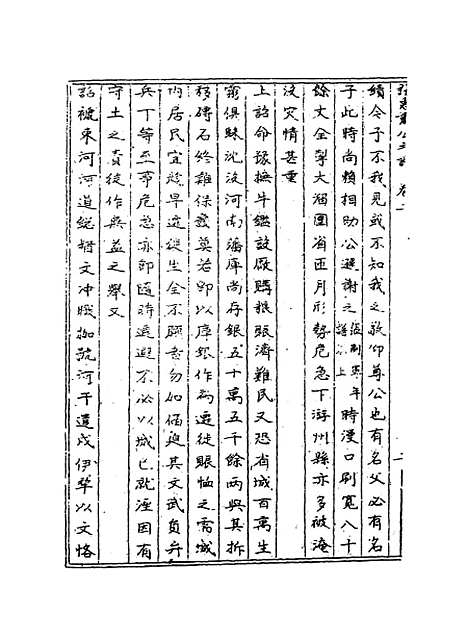 續令子不我見或不知我之敬仰尊公也有名父必有名
子此時尚賴相助公遜謝之時漫口刷寬八十
餘丈全掣大溜圍省匝月形勢危急下游州縣亦多被淹
沒灾情甚重
上詔命豫撫牛鑑設廠購糧賑濟難民又恐省城百萬生
靈俱昧沈沒河南藩庫尚存銀五十萬五千餘兩與其拆
磚石終難保護莫若即以庫銀作為遷徙賑恤之需城
内居民宜趁早遷徙生全不願者勿如循與其文武員弁
兵丁等至事危急亦即隨時遷避不必以城已就湮因有
守土之責徒作無益之舉又
詔褫東河河道總督文冲職枷號河干遣戍伊犂以文恪